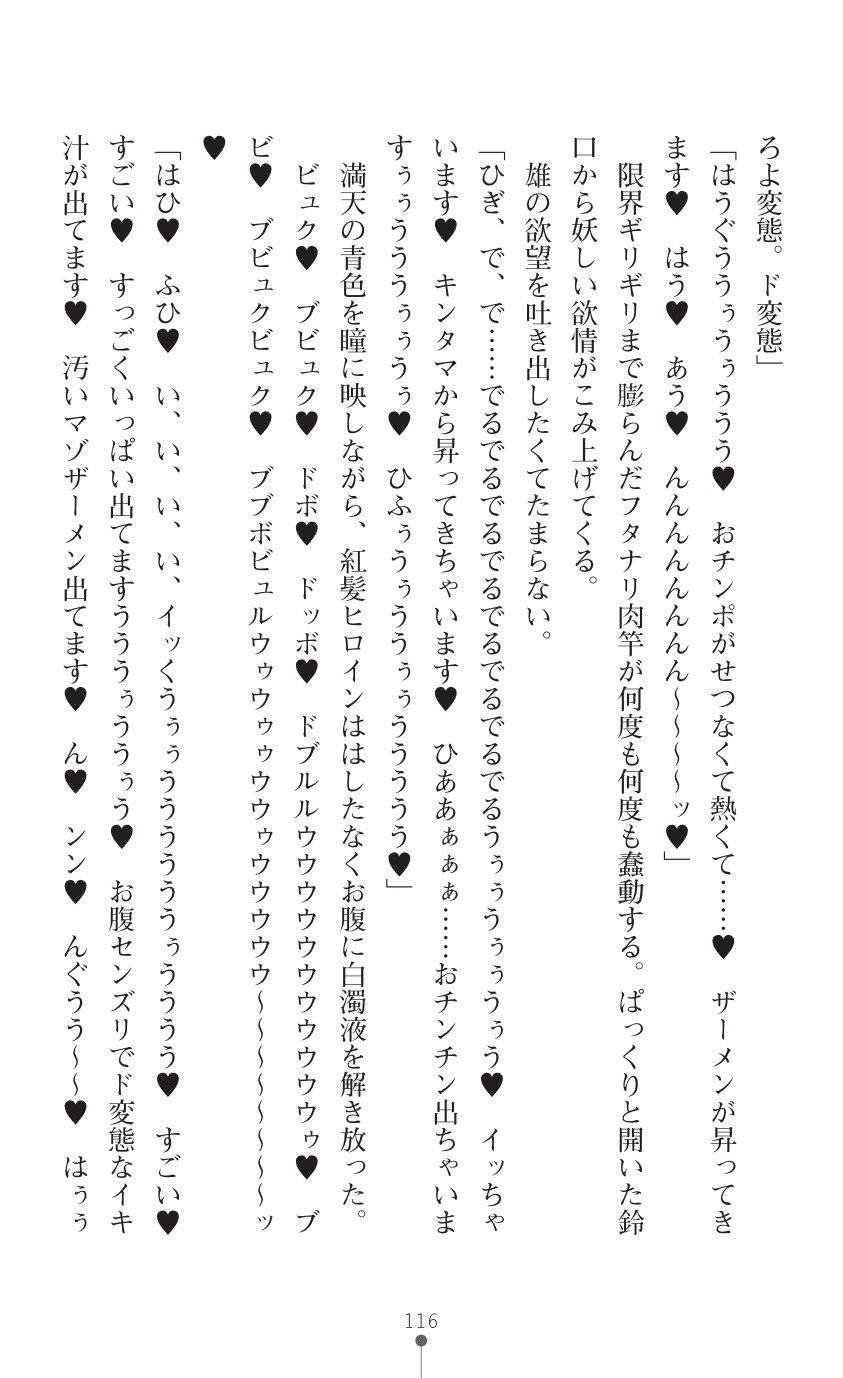 ろよ変態。ド変態」
「はうぐううぅうぅううう♥　おチンポがせつなくて熱くて……♥　ザーメンが昇ってき
ます♥　はう♥　あう♥　んんんんんんんん～～～～ッ♥」
　限界ギリギリまで膨らんだフタナリ肉竿が何度も何度も蠢動する。ぱっくりと開いた鈴
口から妖しい欲情がこみ上げてくる。
　雄の欲望を吐き出したくてたまらない。
「ひぎ、で、で……でるでるでるでるでるでるでるでるうぅぅうぅぅうぅう♥　イッちゃ
います♥　キンタマから昇ってきちゃいます♥　ひああぁぁぁ……おチンチン出ちゃいま
すぅぅうううぅぅうぅ♥　ひふぅうぅううぅぅううううう♥」
　満天の青色を瞳に映しながら、紅髪ヒロインははしたなくお腹に白濁液を解き放った。
　ビュク♥　ブビュク♥　ドボ♥　ドッボ♥　ドブルルウウウウウウウウウウウゥ♥　ブ
ビ♥　ブビュクビュク♥　ブブボビュルウゥウゥゥウウゥウウウウウ～～～～～～～～ッ
♥
「はひ♥　ふひ♥　い、い、い、い、イッくうぅぅうううううううぅうううう♥　すごい♥
すごい♥　すっごくいっぱい出てますうううぅううぅう♥　お腹センズリでド変態なイキ
汁が出てます♥　汚いマゾザーメン出てます♥　ん♥　ンン♥　んぐうう～～♥　はぅぅ
116